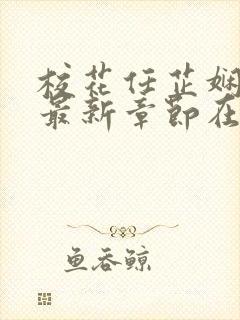 校花任芷娴
最新章节在
鱼吞鲸